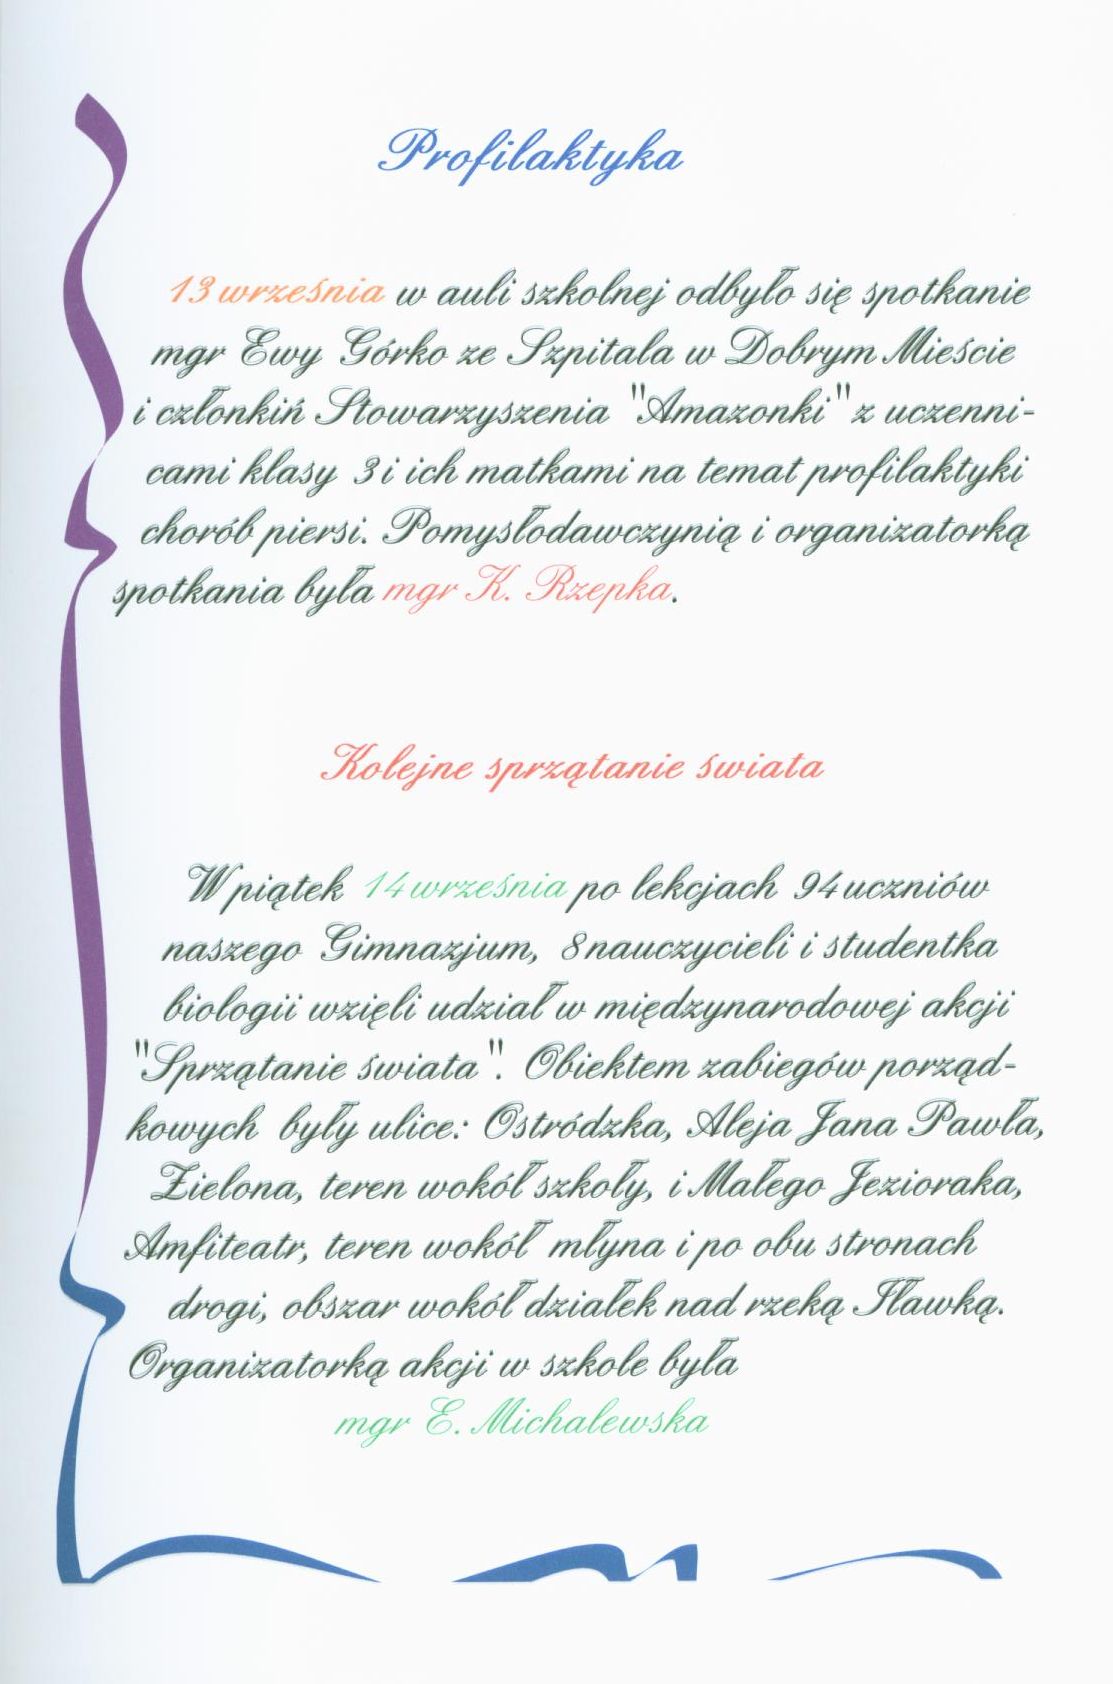 Profilaktyka
13 września w auli szkolnej odbyło się spotkanie
mgr Ewy Górko ze Szpitala w Dobrym Mieście
i członkiń Stowarzyszenia "Amazonki" z uczenni-
cami klasy 3 i ich matkami na temat profilaktyki
chorób piersi. Pomysłodawczynią i organizatorką
spotkania była mgr K. Rzepka.
Kolejne sprzątanie świata
W piątek 14 września po lekcjach 94 uczniów
naszego Gimnazjum, 8 nauczycieli i studentka
biologii wzięli udział w międzynarodowej akcji
"Sprzątanie świata". Obiektem zabiegów porząd-
kowych były ulice: Ostródzka, Aleja Jana Pawła,
Zielona, teren wokół szkoły, i Małego Jezioraka,
Amfiteatr, teren wokół młyna i po obu stronach
drogi, obszar wokół działek nad rzeką Iławką.
Organizatorką akcji w szkole była
mgr E. Michalewska